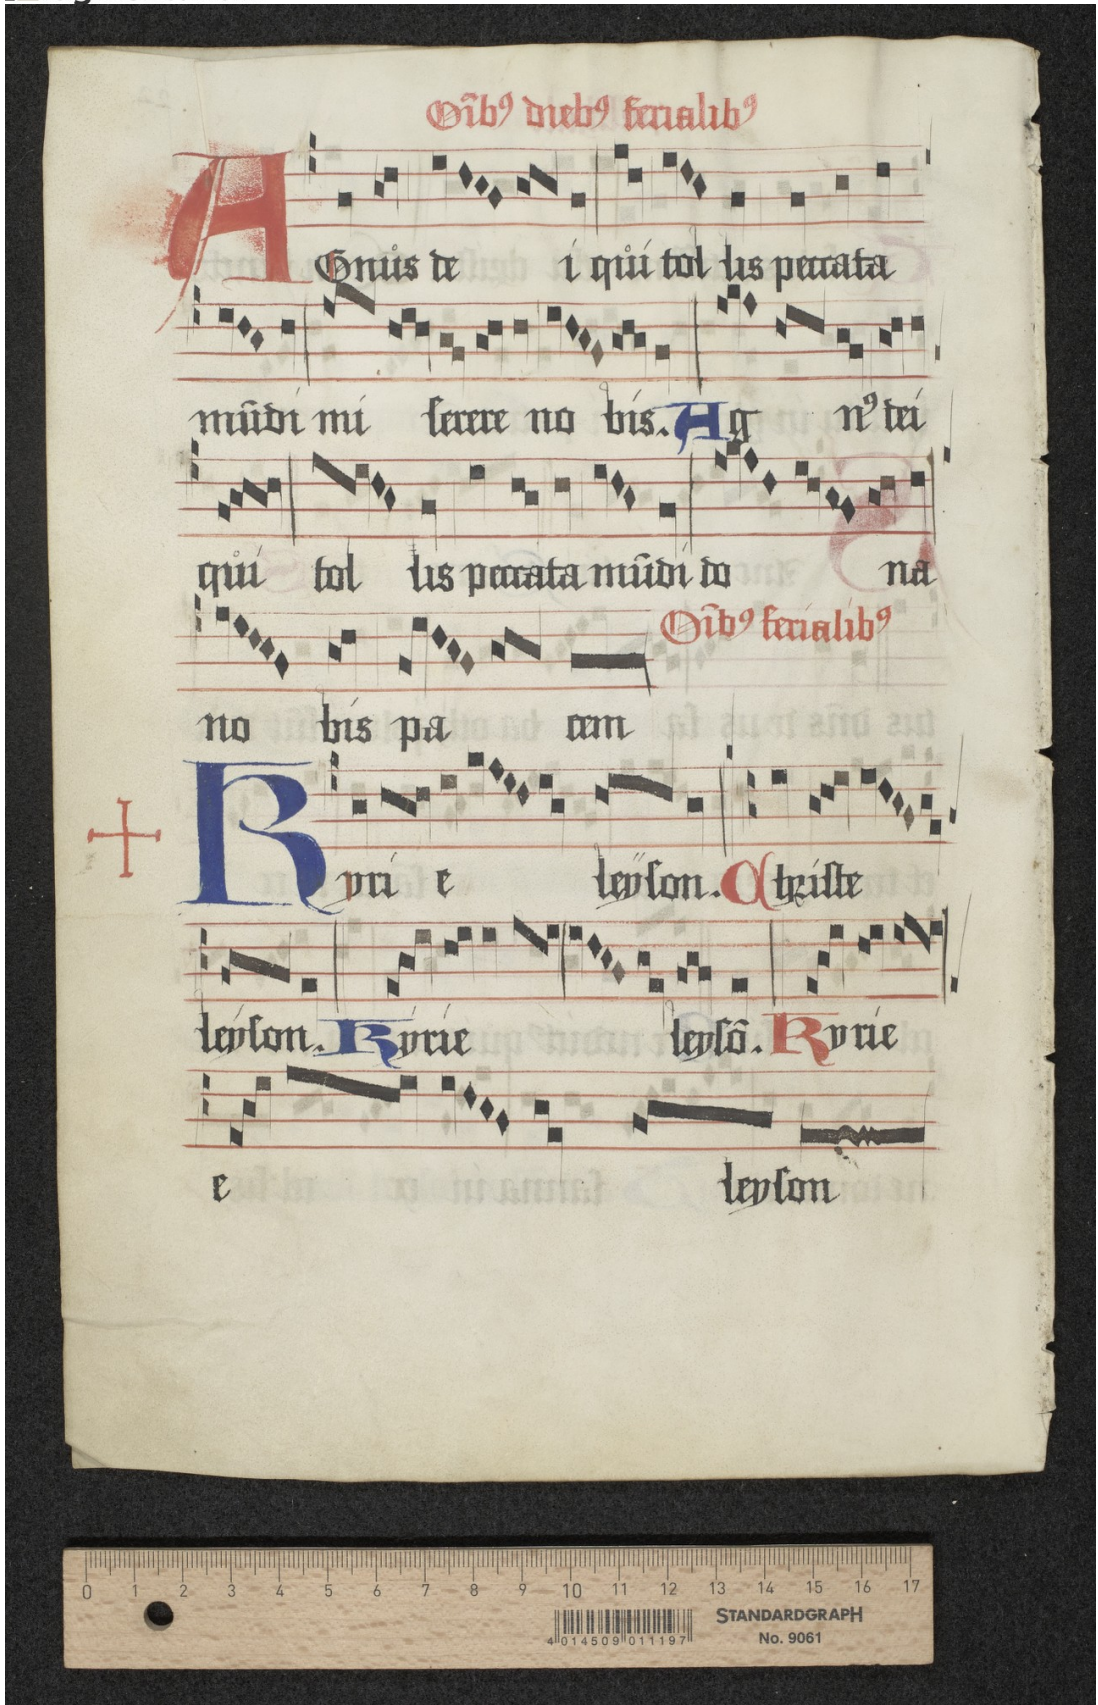 Oı̄bꝰ dıebꝰ ferıalıbꝰ
AGnůs de i qůi tol lis peccata
mūdi mi ſerere no bis. Ag nꝰ dei
qůi tol lis peccata mūdi do na
Oı̄bꝰ ferıalıbꝰ
no bis pa cem
Kyri e leÿſon. Chriſte
leyſon. Kyrie leyſō. Kyrie
e leyſon
0 1 2 3 4 5 6 7 8 9 10 11 12 13 14 15 16 17
STANDARDGRAPH
No. 9061
4 014509 011197